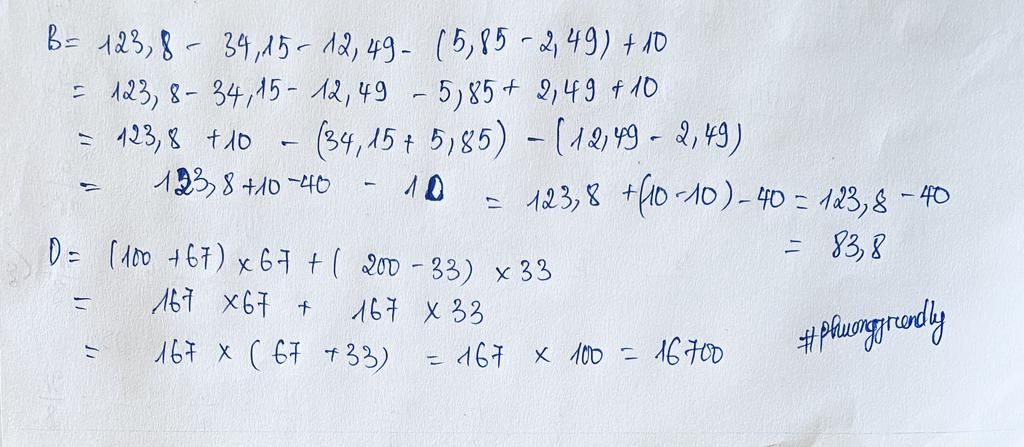 B= 123,8 - 34,15 - 12,49 - (5,85 - 2,49) + 10
= 123,8 - 34,15 - 12,49 - 5,85 + 2,49 + 10
= 123,8 + 10 - (34,15 + 5,85) - (12,49 - 2,49)
= 123,8 + 10 - 40 - 10 = 123,8 + (10 - 10) - 40 = 123,8 - 40
= 83,8
D= (100 + 67) × 67 + (200 - 33) × 33
= 167 × 67 + 167 × 33
= 167 × (67 + 33) = 167 × 100 = 16700
#phuongfriendly